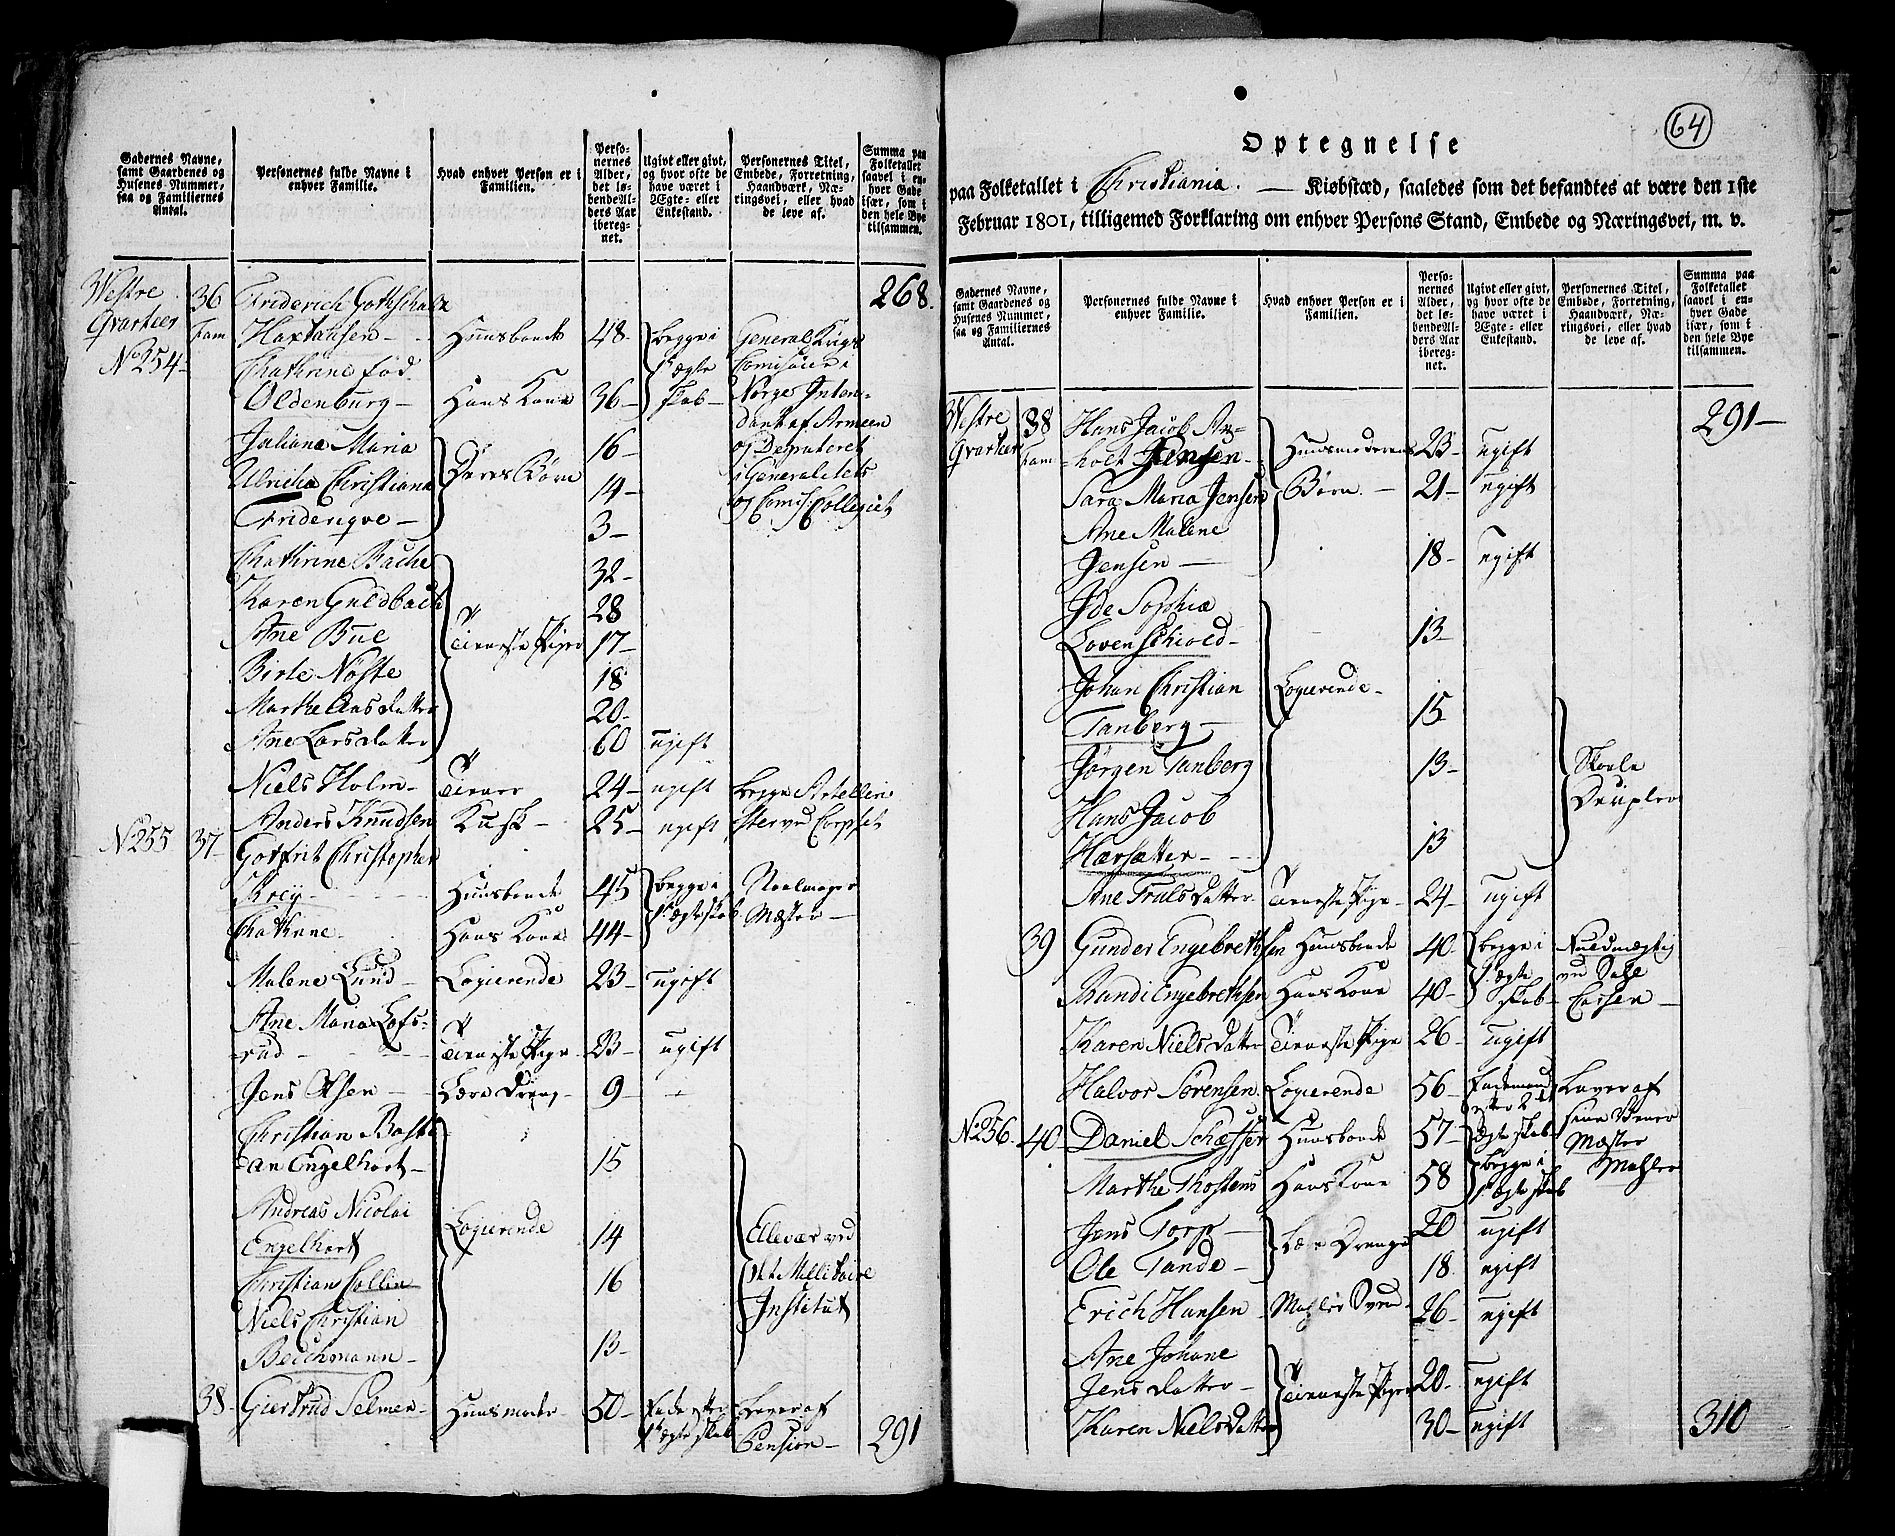 Gadernes Navne, samt Gaardenes og Husenes Nummer, saa og Familiernes Antal.
Personernes fulde Navne i enhver Familie.
Hvad enhver Person er i Familien.
Personernes Alder, det løbende Alders Aar iberegnet.
Ugivt eller givt, og hvor ofte de have været i Ægte- eller Enkestand.
Personernes Titel, Embede, Forretning, Haandværk, Næringsvei, eller hvad de leve af.
Summa paa Folketallet saavel i enhver Gade især, som i den hele Bye tilsammen.
Westre Qvarteer No 254 36 Fam Friderich Gothschalk 268.
Haxtahsen Huusbonde 48 begge i Ægteskab General Krigs Comisair i
Cathrine fød Oldenburg Hans Kone 36 Norge Intendant af Armeen
Juliana Maria 16 og Deputeret
Ulricha Christiana Deres Børn 14 i Generalitets
Friderique 3 og Comis. Collegiet
Cathrine Bache 32
Karen Guldbach 28
Ane Bue Tieneste Piger 17
Birte Nøste 18
Marthe Aasdatter 20
Ane Larsdatter 60 ugift
Niels Holm Tiener 24 ugift begge Artelleri
Anders Knudsen Kusk 25 ugift ster ved Corpset
No 255 37 Gotfrit Christopher
Huusbonde 45 begge i Ægteskab Naalmager Mester
Cathrine Hans Kone 44
Malene Lund Logierende 23 ugift
Ane Maria Lofs-
rud Tieneste Pige 23 ugift
Jens Olsen Lære Dreng 9
Christian Basti
an Engelhart 15
Andreas Nicolai
Engelhart Logierende 14 Ellever ved
Christian Collin 16 det Militaire
Niels Christian Institut
Beichmann 13
38 Giertrud Selmer Huusmoder 50 Enke efter 1ste Ægteskab Lever af Pension 291
64
Optegnelse
paa Folketallet i Christiania. Kiøbstæd, saaledes som det befandtes at være den 1ste
Februar 1801, tilligemed Forklaring om enhver Persons Stand, Embede og Næringsvei, m. v.
Gadernes Navne, samt Gaardenes og Husenes Nummer, saa og Familiernes Antal.
Personernes fulde Navne i enhver Familie.
Hvad enhver Person er i Familien.
Personernes Alder, det løbende Alders Aar iberegnet.
Ugivt eller givt, og hvor ofte de have været i Ægte- eller Enkestand.
Personernes Titel, Embede, Forretning, Haandværk, Næringsvei, eller hvad de leve af.
Summa paa Folketallet saavel i enhver Gade især, som i den hele Bye tilsammen.
Westre Qvarteer 38 Fam Hans Jacob Ar- 291
holt Jensen Huusmoderens 23 ugift
Sara Maria Jensen Børn 21 ugift
Ane Malene
Jensen 18 ugift
Ide Sophia
Lovenschiold 13
Johan Christian Logierende
Tanberg 15
Jørgen Tanberg 13 Skoele Disipler
Hans Jacob
Hærsætter 13
Ane Trulsdatter Tieneste Pige 24 ugift
39 Gunder Engebrethsen Huusbonde 40 begge i Ægteskab Fuldmægtig ved Sahl Carsen
Randi Engebrethsen Hans Kone 40
Karen Nielsdatter Tieneste Pige 26 ugift
Halvor Sørensen Logierende 56 Enkemand efter 2det Ægteskab Lever af sine
No 256. 40 Daniel Schæffer Huusbonde 57 begge i Ægteskab Mester Mahler
Marthe Thostens Hans Kone 58
Jens Torp Lære Drenge 20 ugift
Ole Tande 18 ugift
Erich Hansen Mahler Svend 26 ugift
Ane Johane
Jensdatter Tieneste Piger 20 ugift
Karen Nielsdatter 30 ugift 310